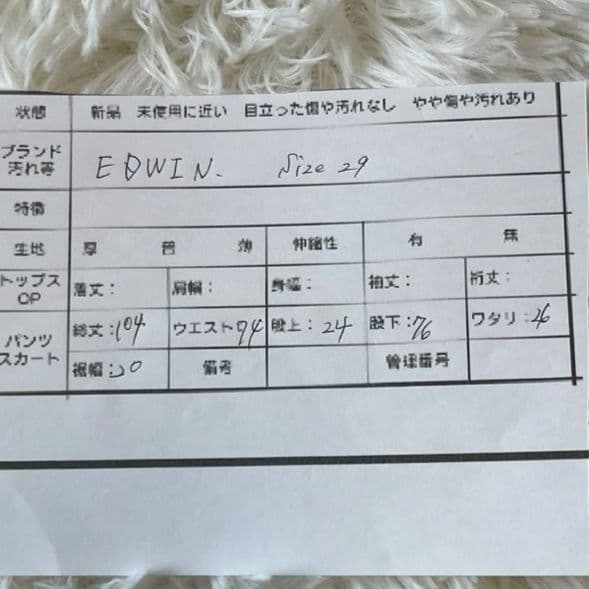 状態 新品 未使用に近い 目立った傷や汚れなし やや傷や汚れあり
ブランド
汚れ等 EDWIN. Size 29
特徴
生地 厚 普 薄 伸縮性 有 無
トップス
OP 着丈: 肩幅: 身幅: 袖丈: 裄丈:
パンツ
スカート 総丈:104 ウエスト74 股上:24 股下:76 ワタリ:26
裾幅:20 備考 管理番号